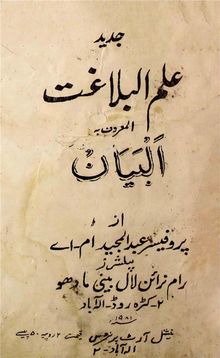 جدید
علم البلاغت
المعروف بہ
البیان
از
پروفیسر عبدالمجید ام-اے
پبلشرز
رام نرائن لال بینی مادھو
۲- کٹرہ روڈ- الہ آباد
۱۹۸۱
نیشنل آرٹ پرنٹرس
الہ آباد-۲
قیمت ۲ روپیہ ۵۰ پیسے